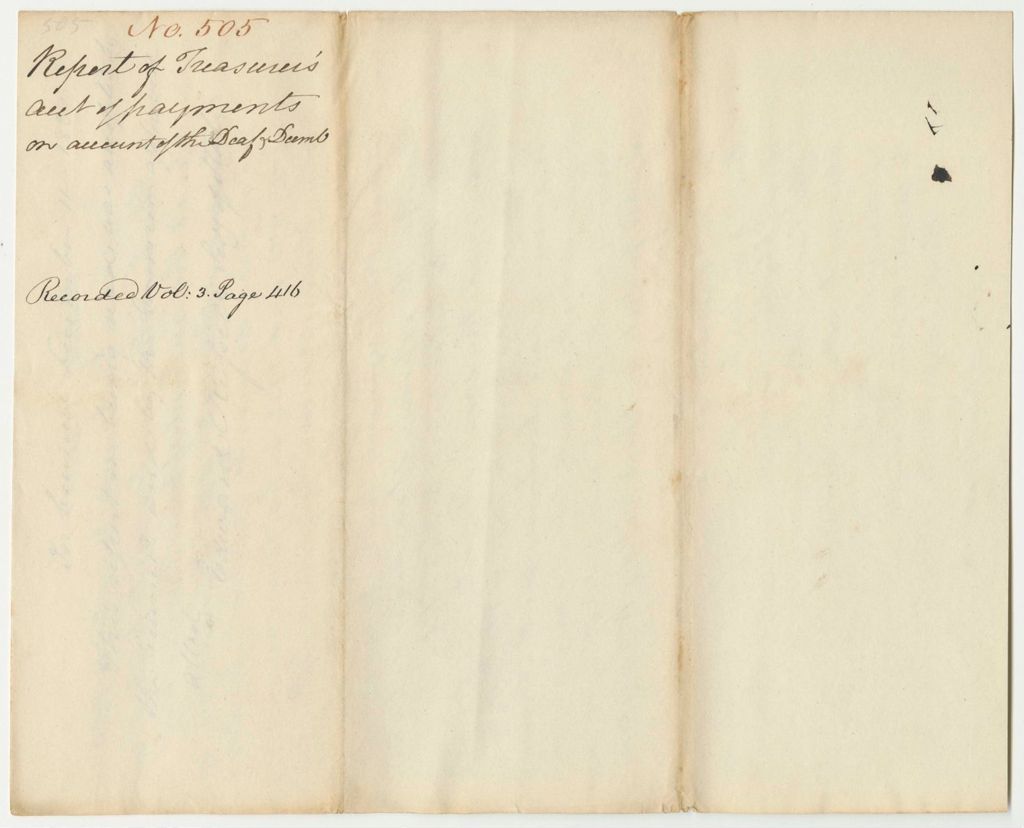 505
No. 505
Report of Treasurer's
acct of payments
on account of the Deaf & Dumb
Recorded Vol: 3. Page 416